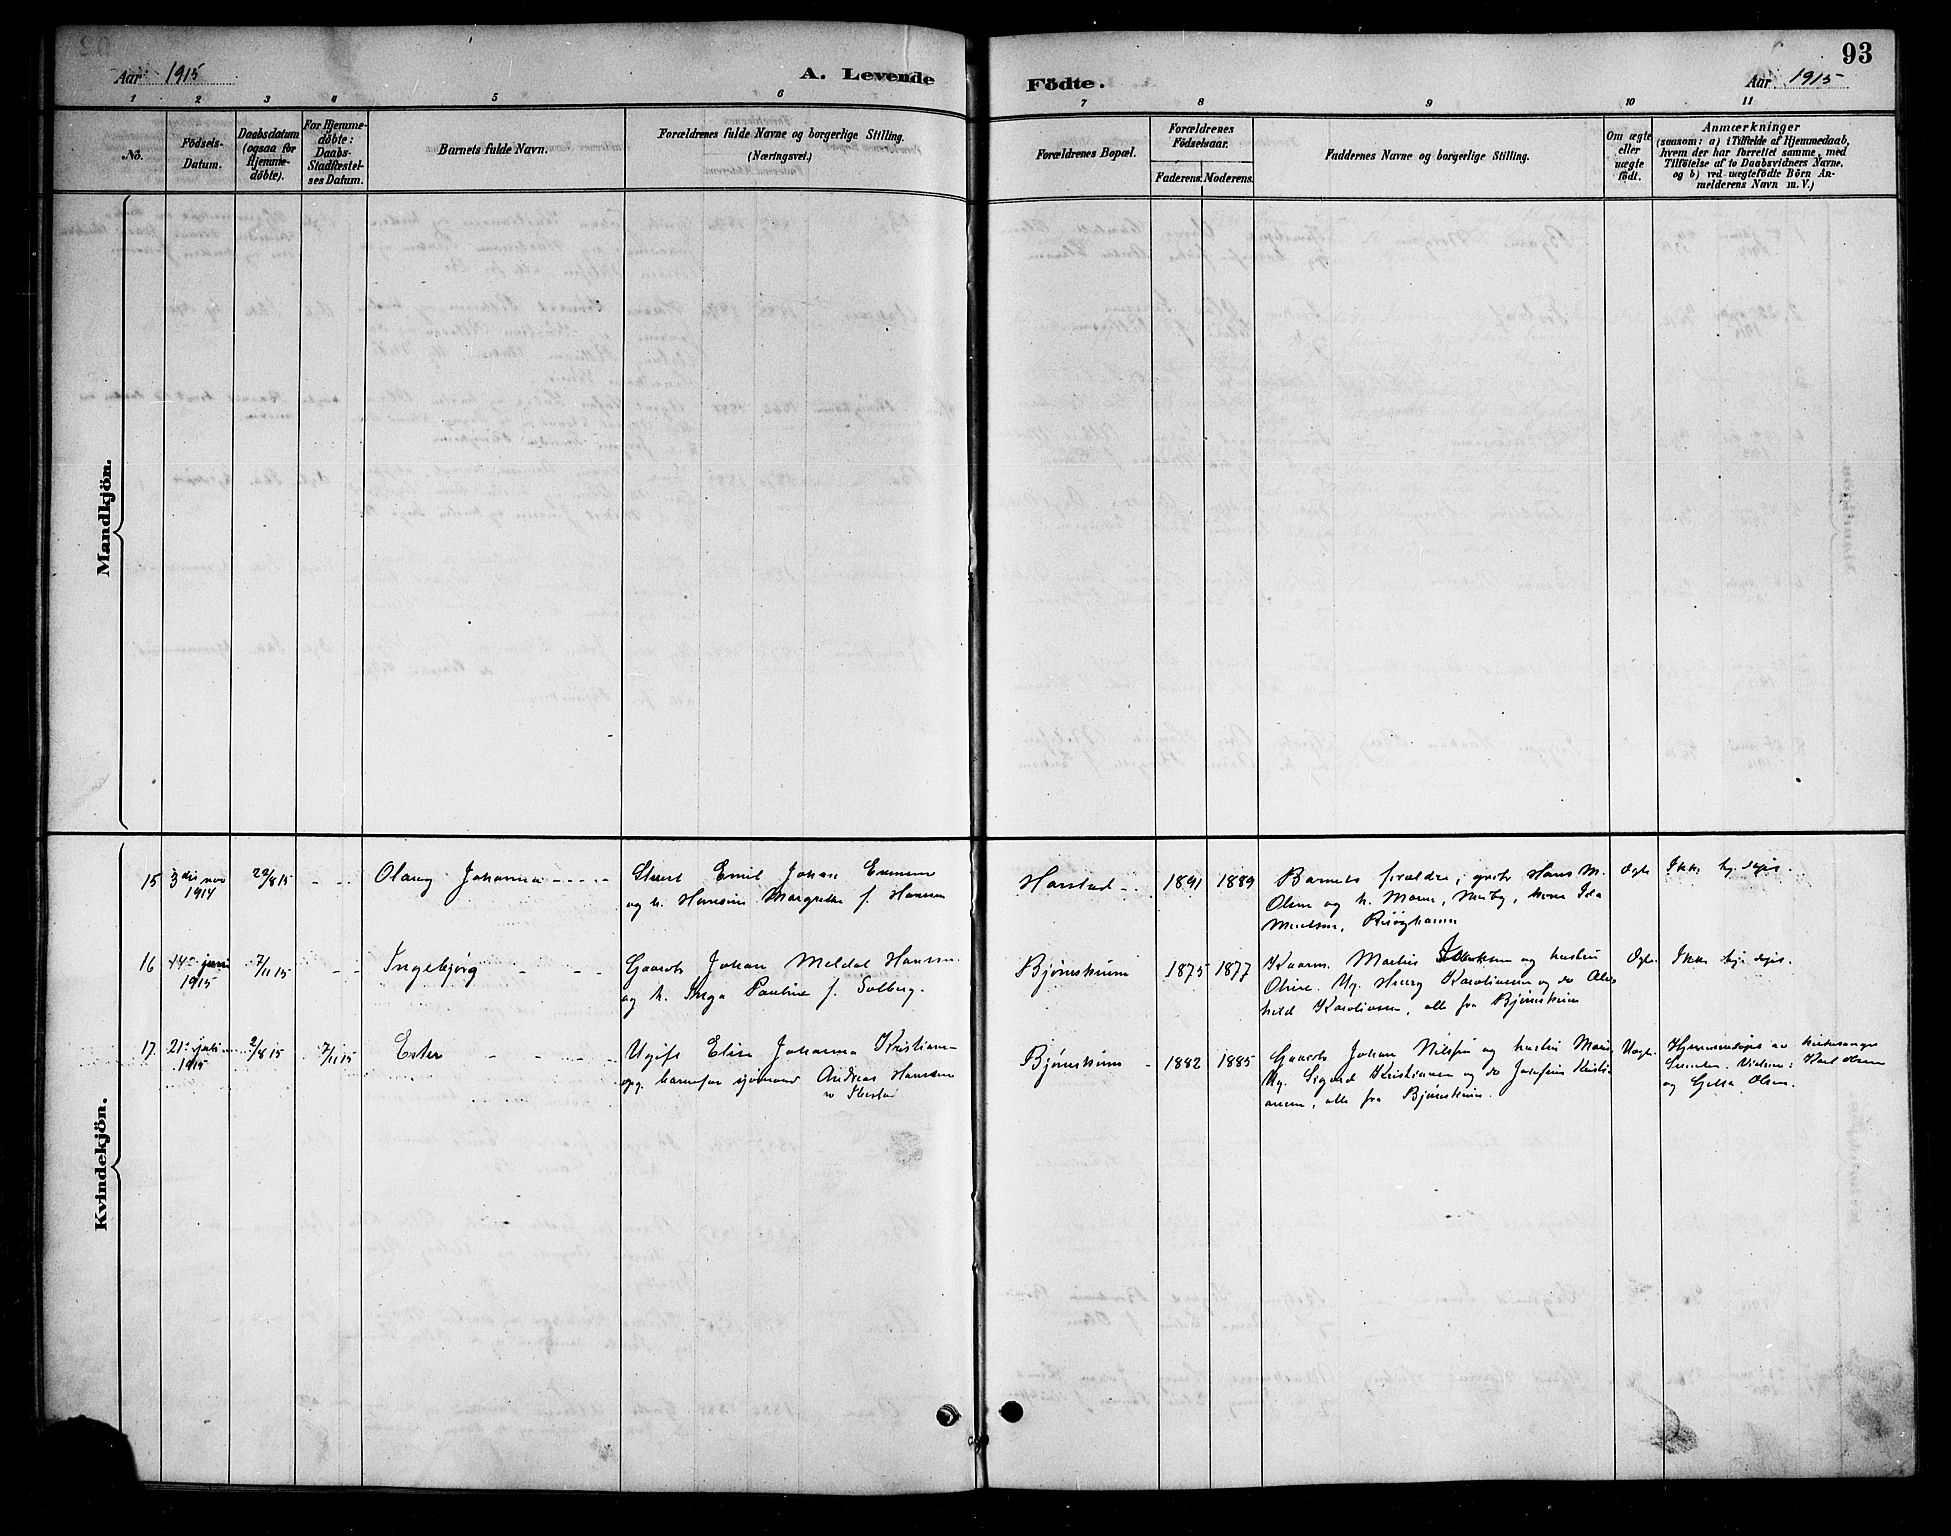 93
Aar 1915
A. Levende
Födte.
Aar 1915
1 2 3 4 5 6 7 8 9 10 11
Nö.
Födsels-
Datum.
Daabsdatum
(ogsaa for
Hjemme-
döbte).
For Hjemme-
döbte:
Daabs-
Stadfæstel-
ses Datum.
Barnets fulde Navn.
Forældrenes fulde Navne og borgerlige Stilling.
(Næringsvei.)
Forældrenes Bopæl.
Forældrenes
Födselsaar.
Faderens. Moderens.
Faddernes Navne og borgerlige Stilling.
Om ægte
eller
uægte
födt.
Anmærkninger
(saasom: a) i Tilfælde af Hjemmedaab,
hvem der har forrettet samme, med
Tilföielse af to Daabsvidners Navne,
og b) ved uægtefödte Börn An-
melderens Navn m. V.)
Mandkjön.
Kvindekjön.
15
3die nov
1914
22/8 15
Olaug Johanna
Emil Johan
og h. Hansine Margrethe f. Hansen
Harstad
1891
1889
Barnets forældre, Hans M.
Olsen og h. Ida
Ægte
Ikke hj. døpt.
16
14de juni
1915
7/11 15
Ingebjørg
Gaardb. Johan Meldal Hansen
og h. Inga Pauline f. Solberg.
Bjørnskinn
1875
1877
Martin og hustru
Oline. Ug. Karoliussen og do
Karoliussen, alle fra Bjørnskinn
Ægte
Ikke hje døpt.
17.
21de juli
1915
2/8 15
7/11 15
Ester
Ugift Elise Johanna Kristiansen
opg. barnefar sjømand Andreas Hanssen
Bjørnskinn
1882
1885
Gaardb. Johan Nilssen og hustru
Ug. Sigurd Kristiansen og do Josefine Kristi-
ansen, alle fra Bjørnskinn.
Uægte
Hjemmedøpt av kirkesanger
Vidner: Karl Olsen
og Olsen.